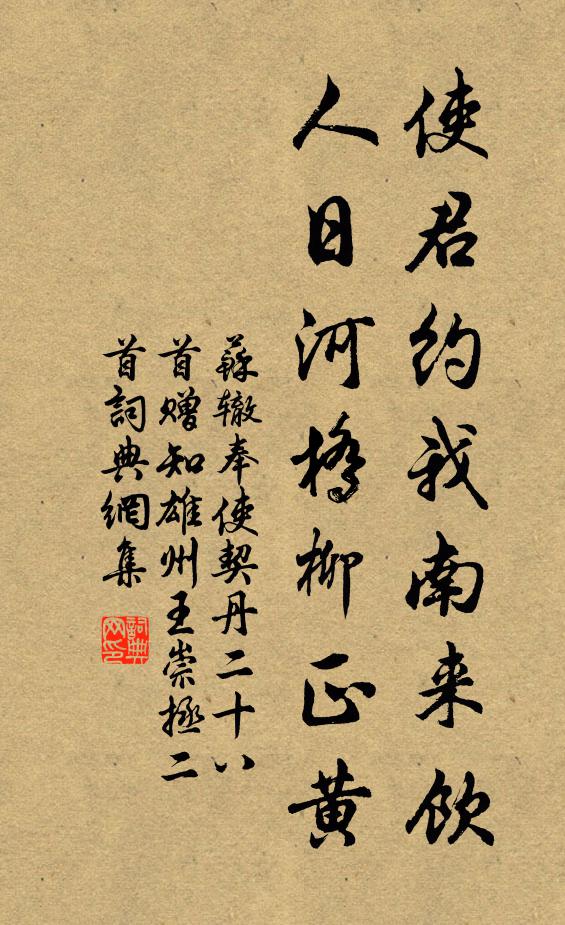 使君约我南来饮
人日河桥柳正黄
蘇辙奉使契丹二十八
首赠知雄州王崇拯二
首詞典網集
詞典
网印